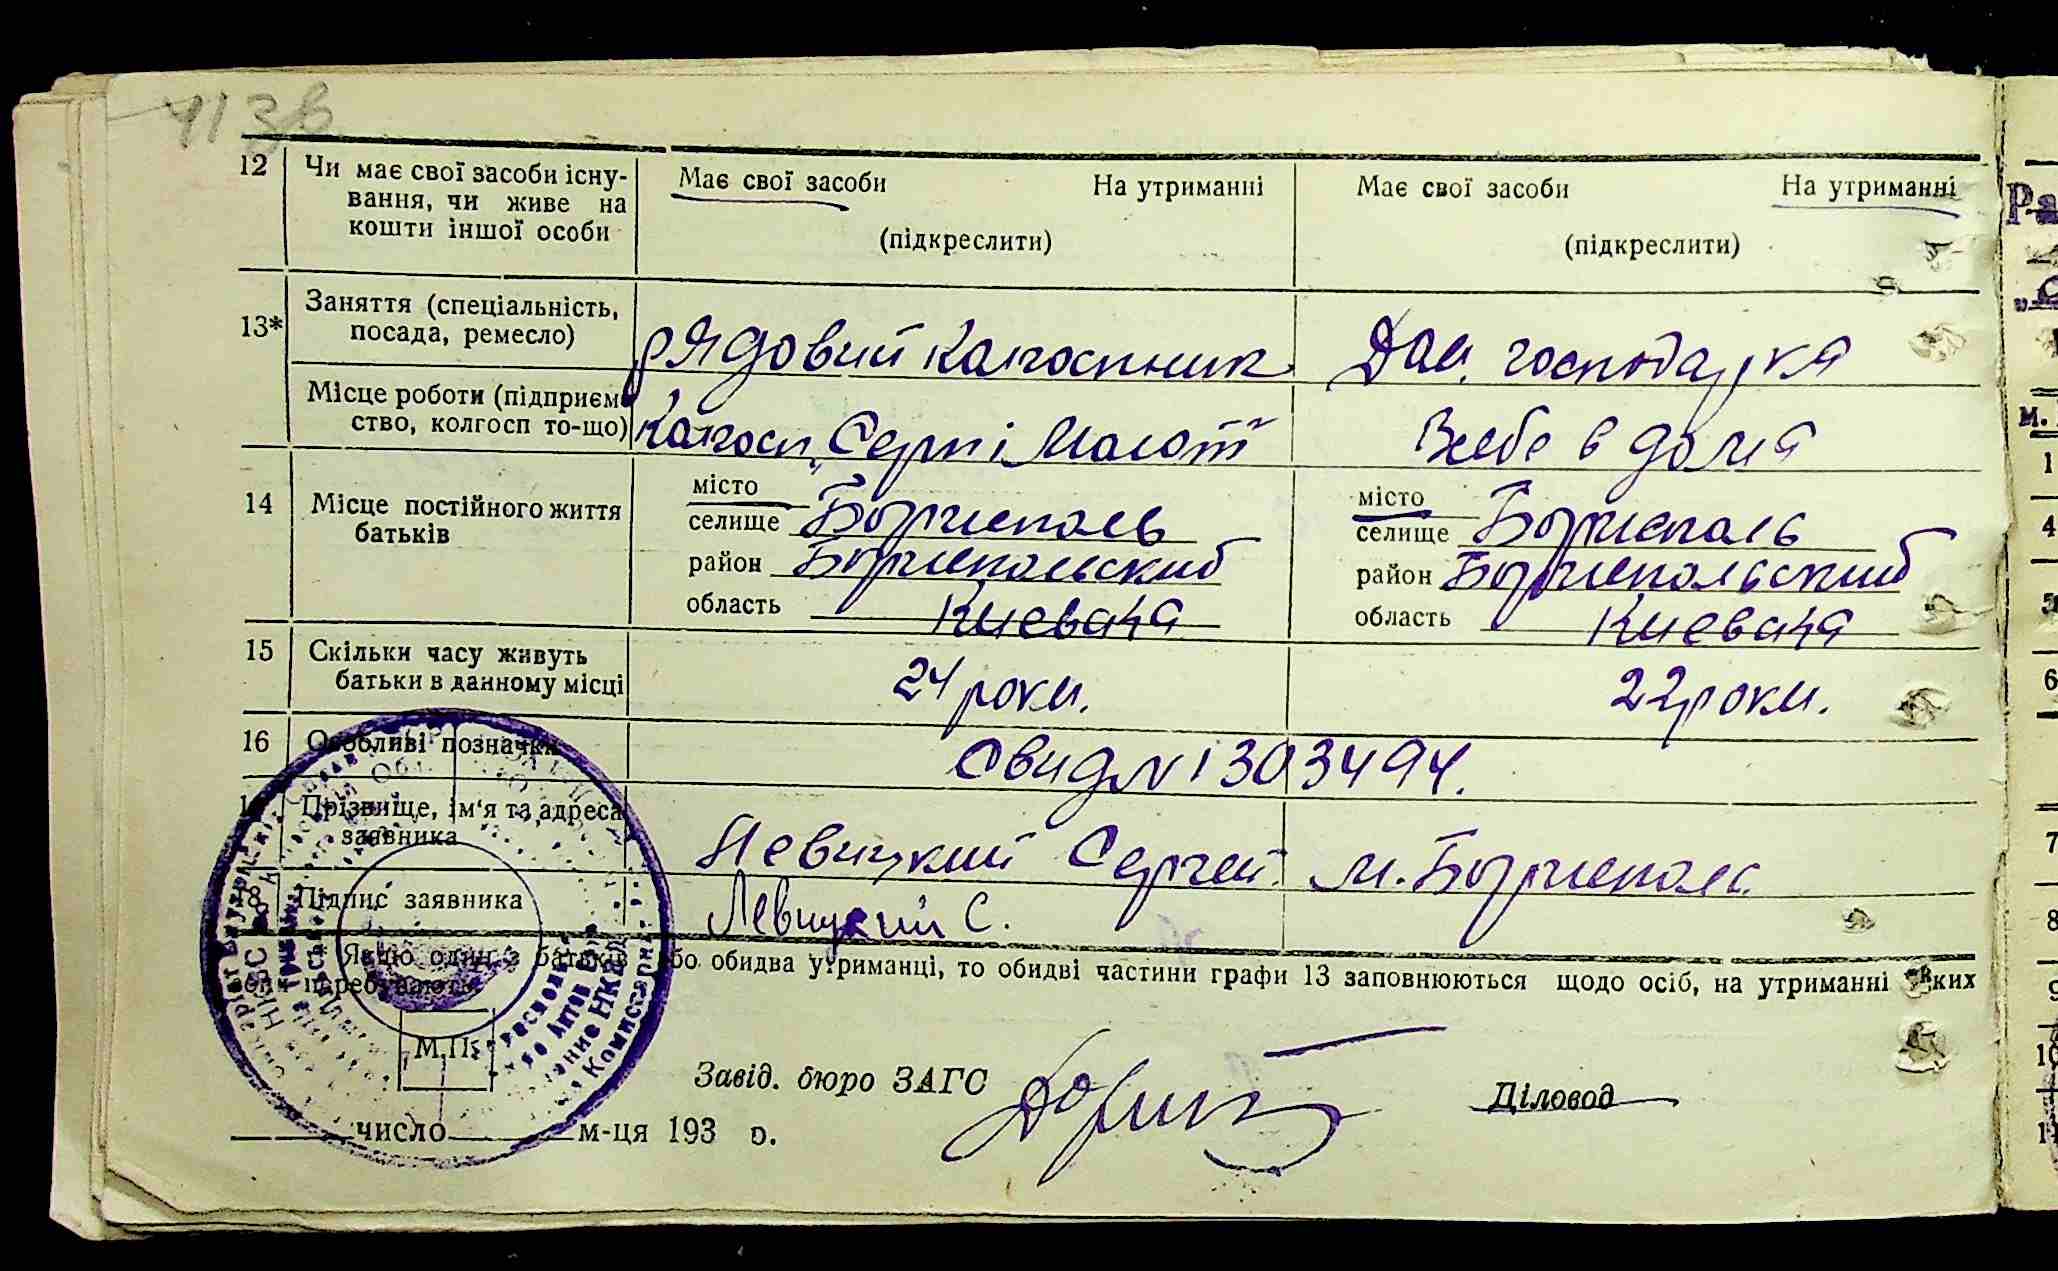 12 Чи має свої засоби існу-
вання, чи живе на
кошти іншої особи
Має свої засоби На утриманні
(підкреслити)
Має свої засоби На утриманні
(підкреслити)
13* Заняття (спеціальність,
посада, ремесло)
рядовий колгоспник
Дом. господарка
Місце роботи (підприєм-
ство, колгосп то-що)
Колгосп „Серп і Молот"
В себе в дома
14 Місце постійного життя
батьків
місто
селище Бориспољ
район Бориспольский
область Киевска
місто
селище Борисполь
район Бориспольский
область
15 Скільки часу живуть
батьки в данному місці
24 роки.
22 роки.
16 Особливі позначки
Свид № 1303494.
Прізвище, ім'я та адреса
заявника
Левицкий Сергей м. Бориспол
18 Підпис заявника
Левицкий С.
Якщо один з батьків або обидва утриманці, то обидві частини графи 13 заповнюються щодо осіб, на утриманні яких
вони перебувають
М.П.
Завід. бюро ЗАГС
Діловод
число м-ця 193 р.